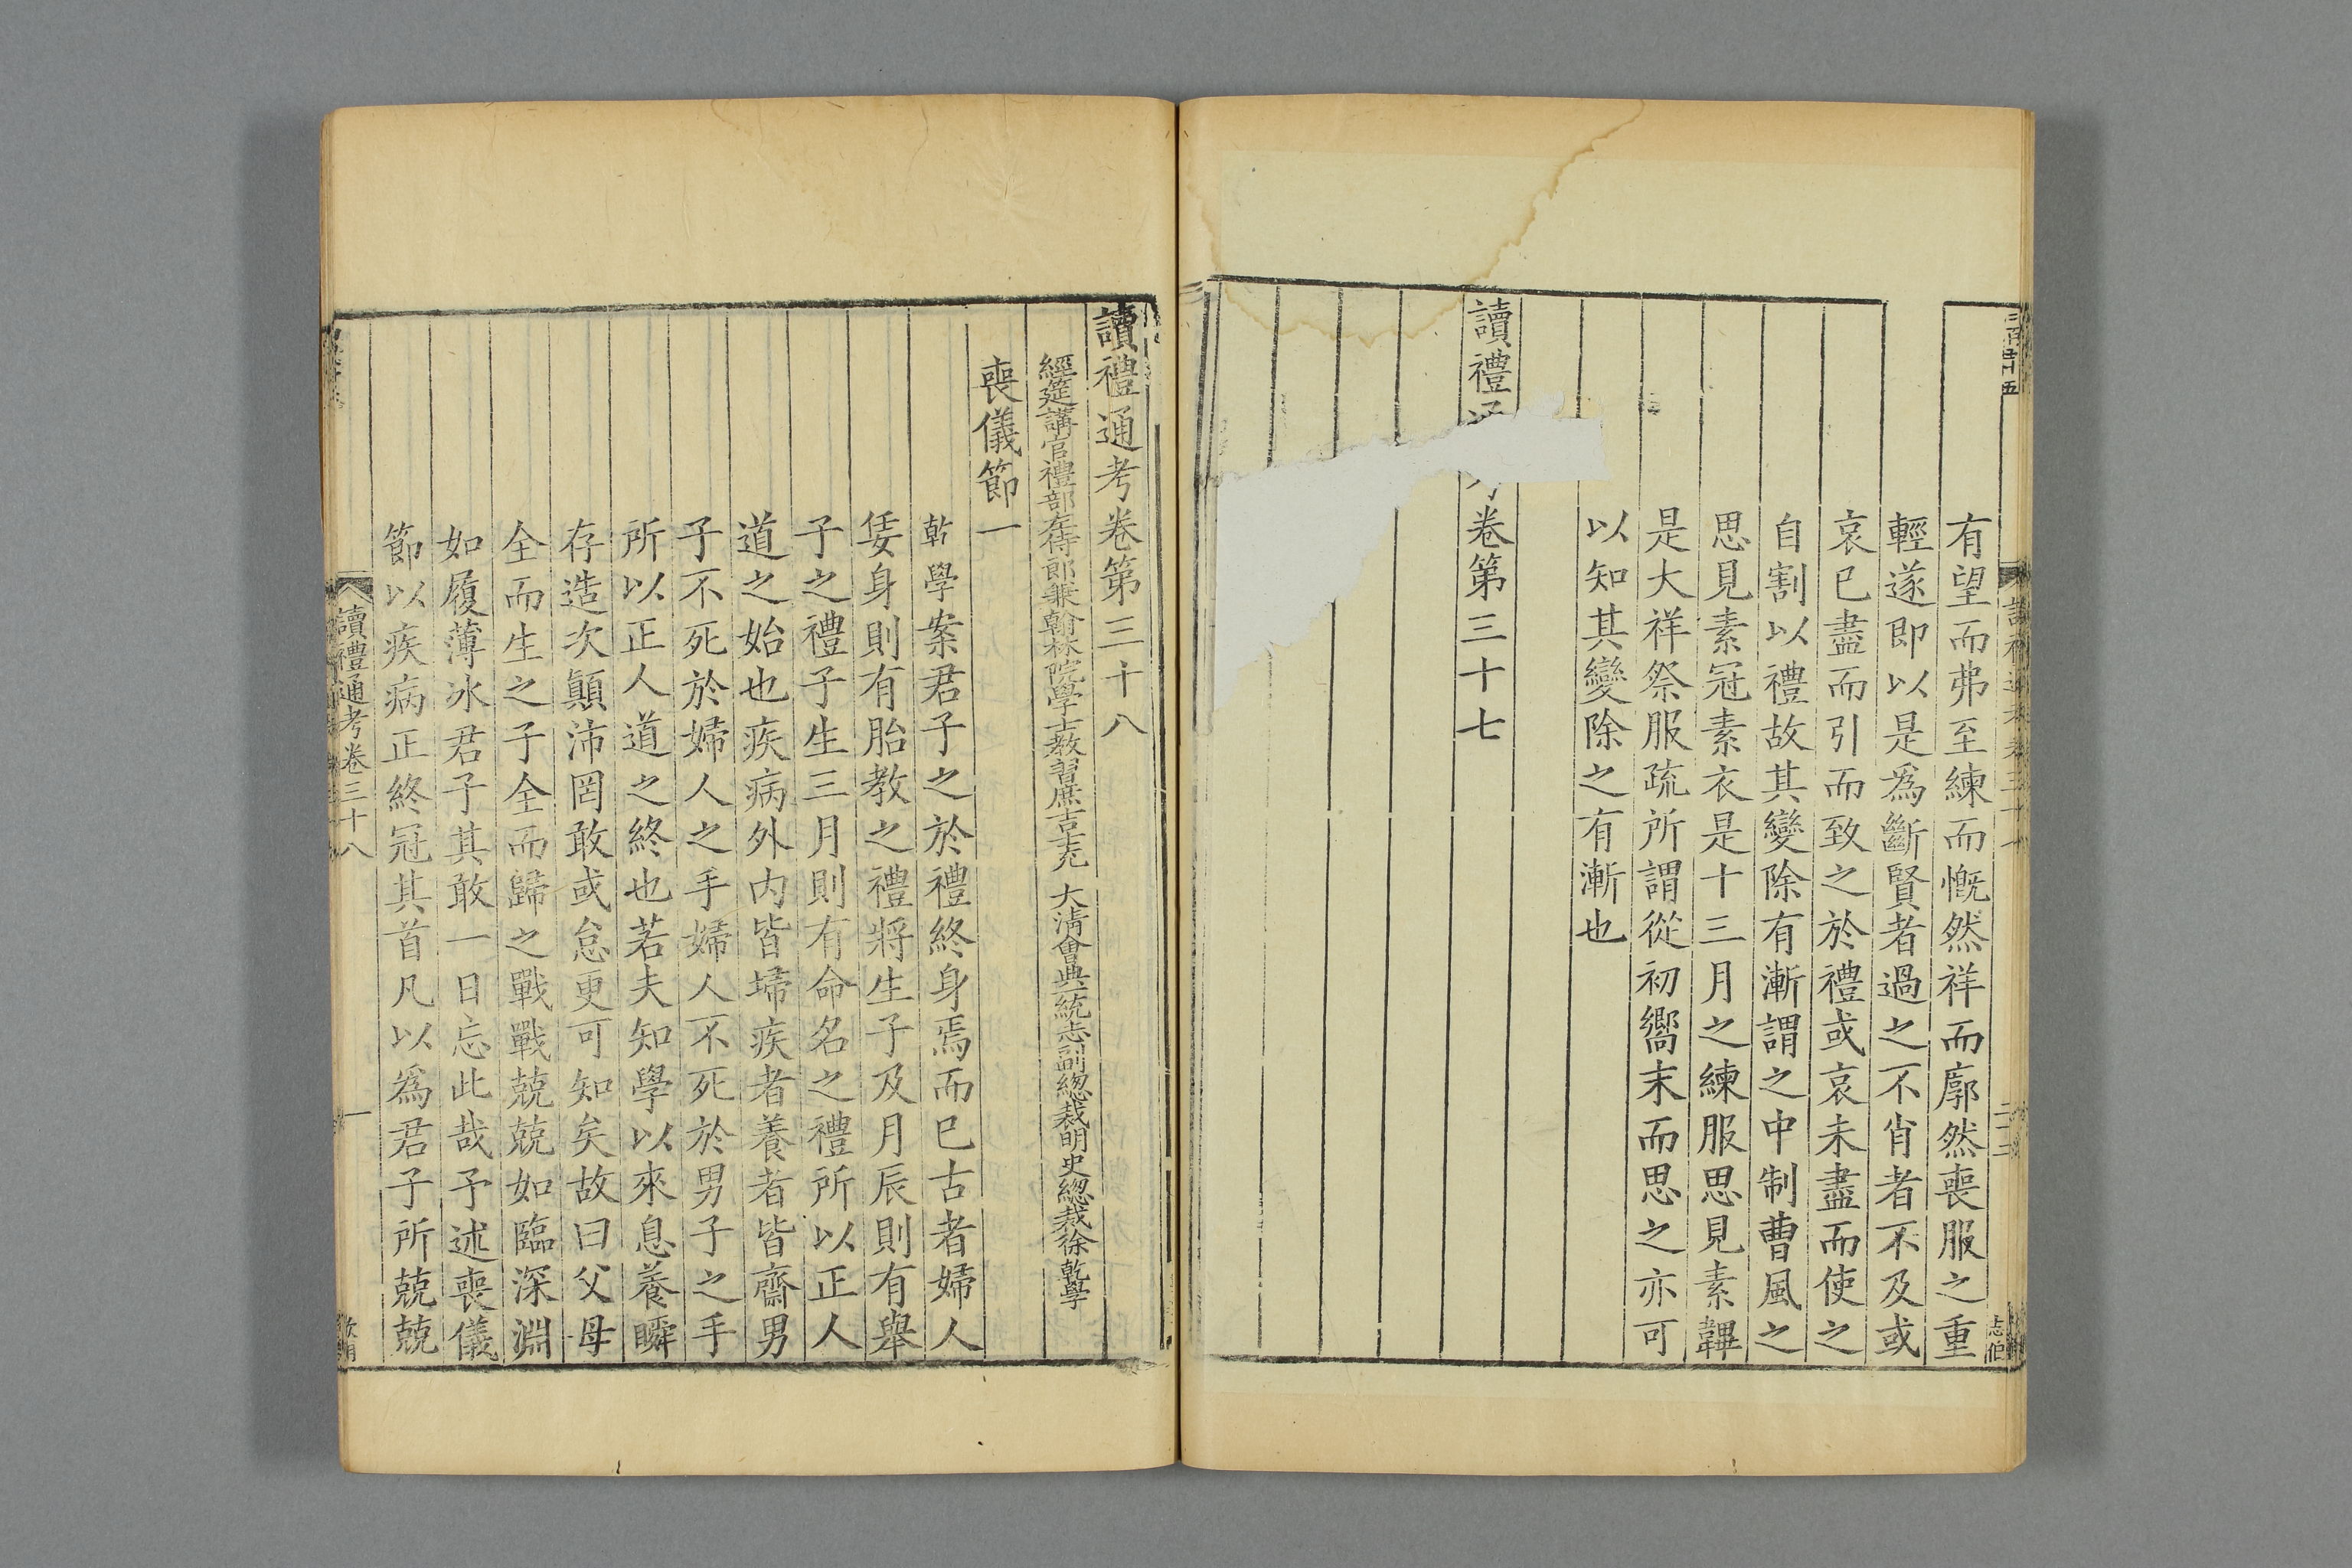 有望而弗至練而慨然祥而廓然喪服之重
輕遂即以是為斷賢者過之不肖者不及或
哀已盡而引而致之於禮或哀未盡而使之
自割以禮故其變除有漸謂之中制曹風之
思見素冠素衣是十三月之練服思見素韠
是大祥祭服疏所謂從初嚮末而思之亦可
以知其變除之有漸也
讀禮
卷第三十七
讀禮通考卷第三十八
經筵講官禮部左侍郎兼翰林院學士教習庶吉士充 大清會典一統志副總裁明史總裁徐乾學
喪儀節一
乾學案君子之於禮終身焉而已古者婦人
㑴身則有胎教之禮將生子及月辰則有舉
子之禮子生三月則有命名之禮所以正人
道之始也疾病外內皆埽疾者養者皆齋男
子不死於婦人之手婦人不死於男子之手
所以正人道之終也若夫知學以來息養瞬
存造次顛沛罔敢或怠更可知矣故曰父母
全而生之子全而歸之戰戰兢兢如臨深淵
如履薄冰君子其敢一日忘此哉予述喪儀
節以疾病正終冠其首凡以為君子所兢兢
讀禮通考卷三十八
一